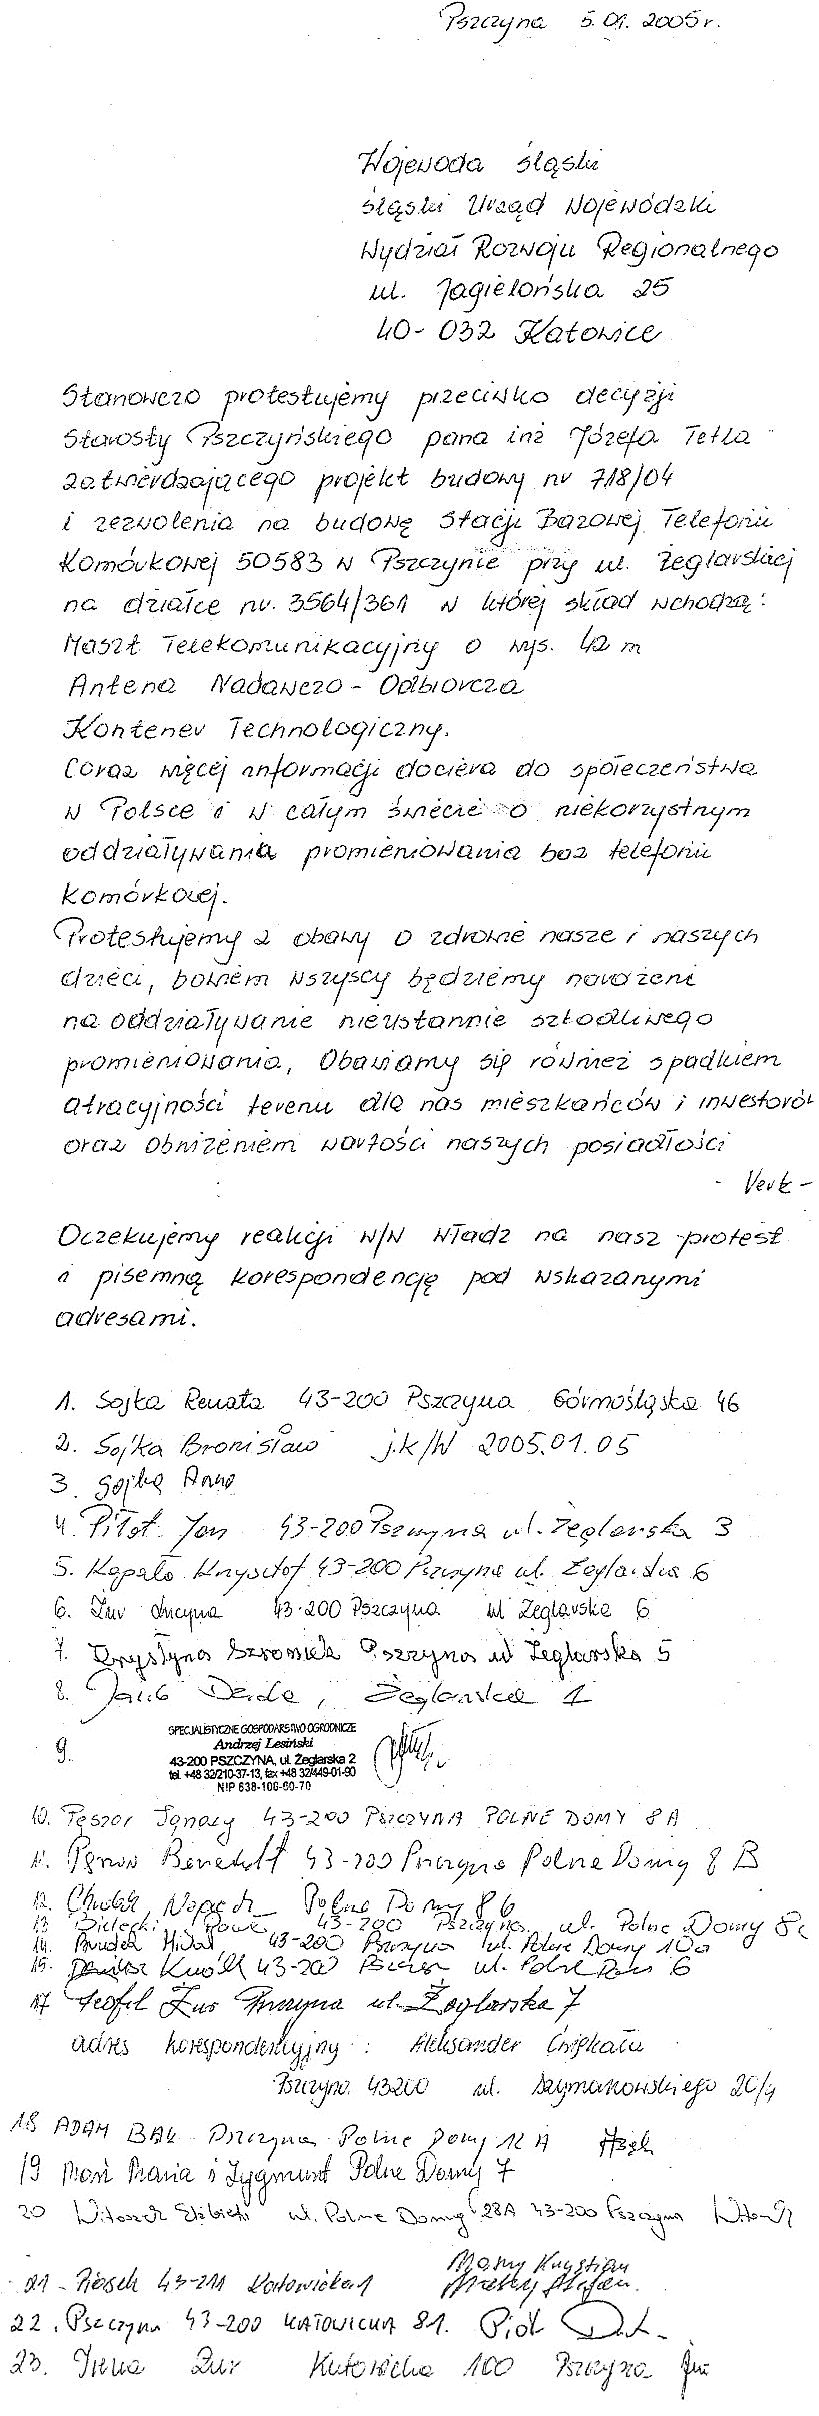 Pszczyna 5.01.2005r.
Wojewoda śląski
śląski Urząd Wojewódzki
Wydział Rozwoju Regionalnego
ul. Jagielońska 25
40-032 Katowice
Stanowczo protestujemy przeciwko decyzji
Starosty Pszczyńskiego pana inż Józefa Tetla
zatwierdzającego projekt budowy nr 718/04
i zezwolenia na budowę Stacji Bazowej Telefonii
Komórkowej 50583 w Pszczynie przy ul. Żeglarskiej
na działce nr. 3564/361 w której skład wchodzą:
Maszt Telekomunikacyjny o wys. 42 m
Antena Nadawczo-Odbiorcza
Kontener Technologiczny.
Coraz więcej informacji dociera do społeczeństwa
w Polsce i w całym świecie o niekorzystnym
oddziaływania promieniowania baz telefonii
komórkowej.
Protestujemy z obawy o zdrowie nasze i naszych
dzieci, bowiem wszyscy będziemy narażeni
na oddziaływanie nieustannie szkodliwego
promieniowania, Obawiamy się również spadkiem
atracyjności terenu dla nas mieszkańców i inwestorów
oraz obniżeniem wartości naszych posiadłości
- Verte -
Oczekujemy reakcji w/w władz na nasz protest
i pisemną korespondencję pod wskazanymi
adresami.
1. Sojka Renata 43-200 Pszczyna Górnośląska 46
2. Sojka Bronisław j.k/w 2005.01.05
3. Sojka Anna
4. Pilot Jan 43-200 Pszczyna ul. Żeglarska 3
5. Kapało Krzysztof 43-200 Pszczyna ul. Żeglarska 6
6. Żur Lucyna 43-200 Pszczyna ul Żeglarska 6
7. Krystyna Szromek Pszczyna ul Żeglarska 5
8. Żeglarska 1
9.
SPECJALISTYCZNE GOSPODARSTWO OGRODNICZE
Andrzej Lesiński
43-200 PSZCZYNA, ul. Żeglarska 2
tel. +48 32/210-37-13, fax +48 32/449-01-90
NIP 638-106-60-70
10. Pęszor Ignacy 43-200 PSZCZYNA POLNE DOMY 8A
11. Benedykt 43-200 Pszczyna Polne Domy 8 B
12. Polne Domy 86
13 Bielecki 43-200 Pszczyna ul. Polne Domy 8c
14. 43-200 Pszczyna ul. Polne Domy 10a
15. 43-200 ul. Polne 6
17 Teofil Żur Pszczyna ul. Żeglarska 7
adres korespondencyjny: Aleksander Ćwiękała
Pszczyna 43200 ul. Szymanowskiego 20/4
18 ADAM BĄK Pszczyna Polne Domy 12 A
19 Maria i Zygmunt Polne Domy 7
20 ul. Polne Domy 28A 43-200 Pszczyna
Krystian
21 - Piasek 43-211 Katowicka 1
22. Pszczyna 43-200 KATOWICKA 81.
23. Irena Żur Katowicka 100 Pszczyna